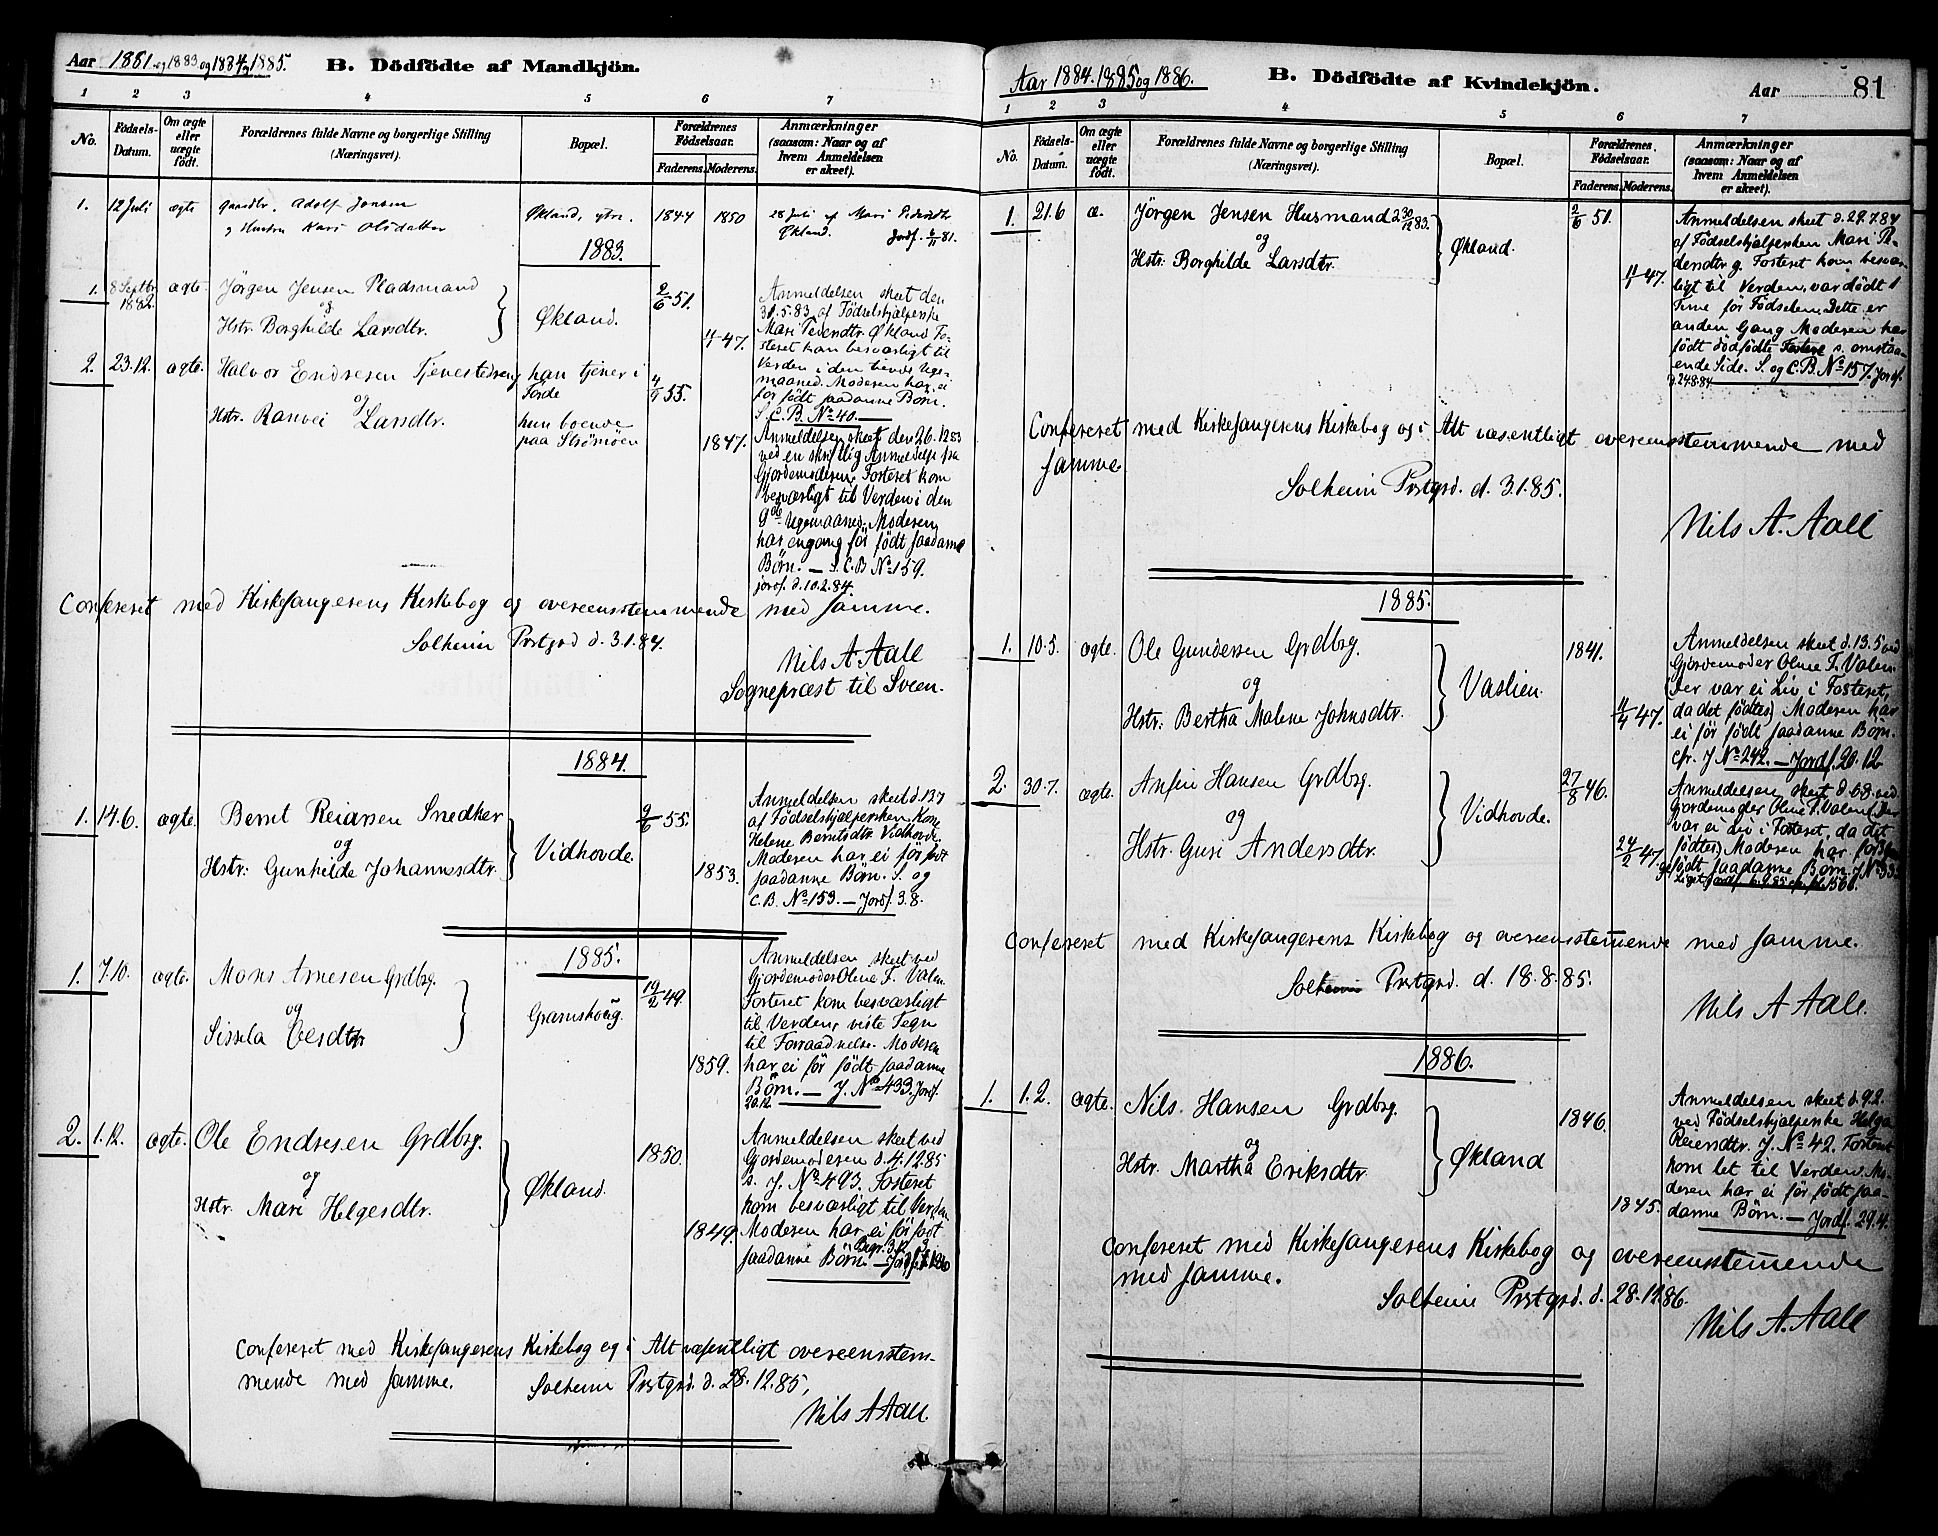 Aar 1881 og 1883 og 1884 og 1885.
B. Dödfödte af Mandkjön.
1 2 3 4 5 6 7
No.
Födsels-Datum.
Om ægte eller uægte födt.
Forældrenes fulde Navne og borgerlige Stilling (Næringsvei).
Bopæl.
Forældrenes Födselsaar.
Faderens. Moderens.
Anmærkninger (saasom: Naar og af hvem Anmeldelsen er skeet).
1. 12 Juli ægte
Gaardbr. Adolf Jonsen
og Hustru Kari Olsdatter
Økland, ytre. 1844 1850
28 Juli af Mari Pedersdtr
Økland. Jordf. 6/11 81.
1883.
1. 8 Septbr 1882. ægte.
Jörgen Jensen Pladsmand
og
Hstr. Borghilde Larsdtr.
Økland.
2/6 51.
11/1 47.
Anmeldelsen skeet den
31.5.83 af Födselshjælperske
Mari Pedersdtr. Økland Fo-
steret kom besværligt til
Verden i den tiende Uge-
maaned. Moderen har ei
för födt saadanne Børn.
S. C. B. No 40.
2. 23.12. ægte.
Halvor Endresen Tjenestedreng
og
Hstr. Ranvei Larsdtr.
han tjener i
Førde
hun boende
paa Strömöen
4/9 55.
1847.
Anmeldelsen skeet den 26.1283
ved en skriftlig Anmeldelse fra
Gjordemoderen. Fosteret kom
besværligt til Verden i den
9de Ugemaaned. Moderen
har engang för födt saadanne
Børn. — S. C. B No 159.
jordf. d. 10.2.84.
Confereret med Kirkesangerens Kirkebog og overeensstemmende med samme.
Solheim Prstgrd d. 3.1.84.
Nils A. Aall
Sognepræst til Sveen.
1884.
1. 14.6. ægte.
Bernt Reiarsen Snedker
og
Hstr: Gunhilde Johannesdtr.
Vidhovde.
9/6 55.
1853.
Anmeldelsen skeet d. 13.7
af Födselshjælpersken Kone
Helene Berntsdtr. Vidhovde.
Moderen har ei för födt
saadanne Börn. S. og
C. B. No 153. — Jordf. 3.8.
1885.
1. 7.10. ægte.
Mons Arnesen Grdbrg.
og
Sissela
Gramshoug.
19/2 49.
1859.
Anmeldelsen skeet ved
Gjordemoder Oline T. Valen.
Fosteret kom besværligt
til Verden, viste Tegn
til Forraadnelse. Moderen
har ei för födt saadanne
Börn. — J. No 433. Jordf.
20.12.
2. 1.12. ægte.
Ole Endresen Grdbrg.
og
Hstr. Mari Helgesdtr.
Økland.
1850.
1849.
Anmeldelsen skeet ved
Gjordemoderen d. 4.1285
s. J. No 493. Fosteret
kom besværligt til Verden
Moderen har ei för födt
saadanne Börn. —
Confereret med Kirkesangerens Kirkebog og i Alt væsentligt overeensstem-
mende med samme. Solheim Prstgrd. d. 28.12.85,
Nils A Aall.
Aar 1884. 1885 og 1886.
B. Dödfödte af Kvindekjön.
Aar
81
1 2 3 4 5 6 7
No.
Födsels-Datum.
Om ægte eller uægte födt.
Forældrenes fulde Navne og borgerlige Stilling (Næringsvei).
Bopæl.
Forældrenes Födselsaar.
Faderens. Moderens.
Anmærkninger (saasom: Naar og af hvem Anmeldelsen er skeet).
1. 21.6 æ.
Jörgen Jensen Husmand 30/12 83.
og
Hstr: Borghilde Larsdtr.
Økland.
2/6 51.
11/1 47.
Anmeldelsen skeet d. 29.7.84
af Födselshjælpersken Mari Pe-
dersdtr. Fosteret kom besvær-
ligt til Verden, var dødt 1
Time för Födselen. Dette er
anden Gang Moderen har
födt dödfödte Fostre s. omstaa-
ende Side. S. og C. B. No 157. Jordf.
d. 24.8.84
Confereret med Kirkesangerens Kirkebog og i Alt væsentligt overeensstemmende med
samme
Solheim Prstgrd. d. 3.1.85.
Nils A. Aall
1885.
1. 10.5. ægte.
Ole Gundersen Grdbrg.
og
Hstr. Bertha Malene Johnsdtr.
Vaslien.
1841.
11/4 47.
Anmeldelsen skeet d. 13.5 ved
Gjordemoder Oline T. Valen.
Der var ei Liv i Fosteret,
da det fødtes. Moderen har
ei för födt saadanne Børn.
cfr. J No 242. — Jordf. 20.12
2. 30.7. ægte.
Anfin Hansen Grdbrg.
og
Hstr. Guri Andersdtr.
Vidhovde.
27/8 46.
24/2 47.
Anmeldelsen skeet d. 6.8. ved
Gjordemoder Oline T. Valen. Der
var ei Liv i Fosteret, da det
födtes. Moderen har för
födt saadanne Børn.
Confereret med Kirkesangerens Kirkebog og overeensstemende med samme.
Solheim Prstgrd. d. 18.8.85.
Nils A Aall.
1886.
1. 1.2. ægte.
Nils. Hansen Grdbrg.
og
Hstr. Martha Eriksdtr.
Økland
1846.
1845.
Anmeldelsen skeet d. 9.2.
ved Födselshjælperske Helga
Reiersdtr. J. No 42. Fosteret
kom let til Verden. Mo-
deren har ei för födt saa-
danne Börn. — Jordf. 29.4.
Confereret med Kirkesangerens Kirkebog og overeensstemende
med samme.
Solheim Prstgrd. d. 28.12.86.
Nils A. Aall